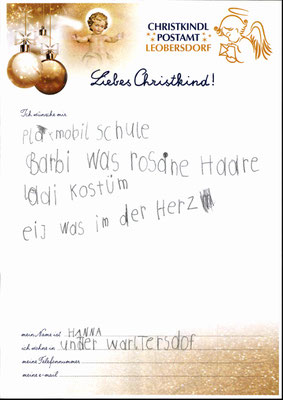 CHRISTKINDL
POSTAMT
LEOBERSDORF
Liebes Christkind!
Ich wünsche mir
playmobil schule
Barbi was rosane Haare
Ladi Kostüm
eij was im der Herz
mein Name ist HANNA
ich wohne in unter warltersdof
meine Telefonnummer
meine e-mail